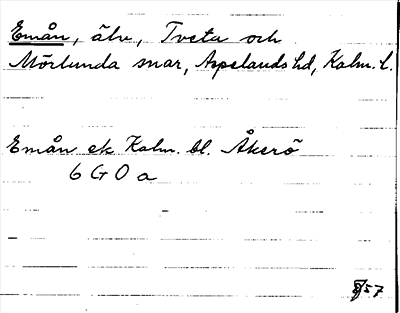 Emån, älv, Tveta och
Mörlunda snar, Aspelands hd, Kalm. l.
Emån ek Kalm. bl. Åkerö
6 G O a
57